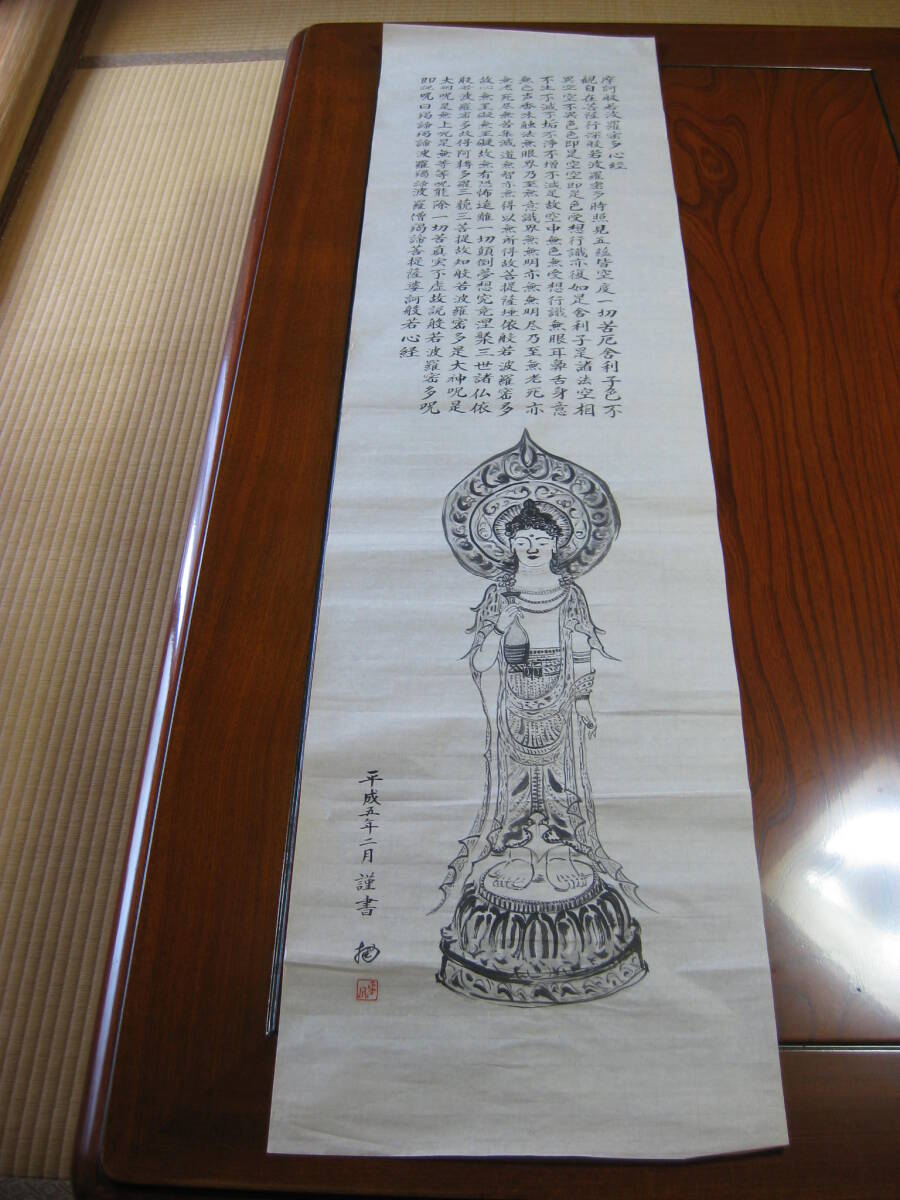 摩訶般若波羅蜜多心経
観自在菩薩行深般若波羅蜜多時照見五蘊皆空度一切苦厄舎利子色不
異空空不異色色即是空空即是色受想行識亦復如是舎利子是諸法空相
不生不滅不垢不浄不増不減是故空中無色無受想行識無眼耳鼻舌身意
無色声香味触法無眼界乃至無意識界無無明亦無無明尽乃至無老死亦
無老死尽無苦集滅道無智亦無得以無所得故菩提薩埵依般若波羅密多
故心無罣礙無罣礙故無有恐怖遠離一切顛倒夢想究竟涅槃三世諸仏依
般若波羅密多故得阿耨多羅三藐三菩提故知般若波羅密多是大神呪是
大明呪是無上呪是無等等呪能除一切苦真実不虚故説般若波羅密多呪
即説呪曰羯諦羯諦波羅羯諦波羅僧羯諦菩提薩婆訶般若心経
平成五年二月 謹書